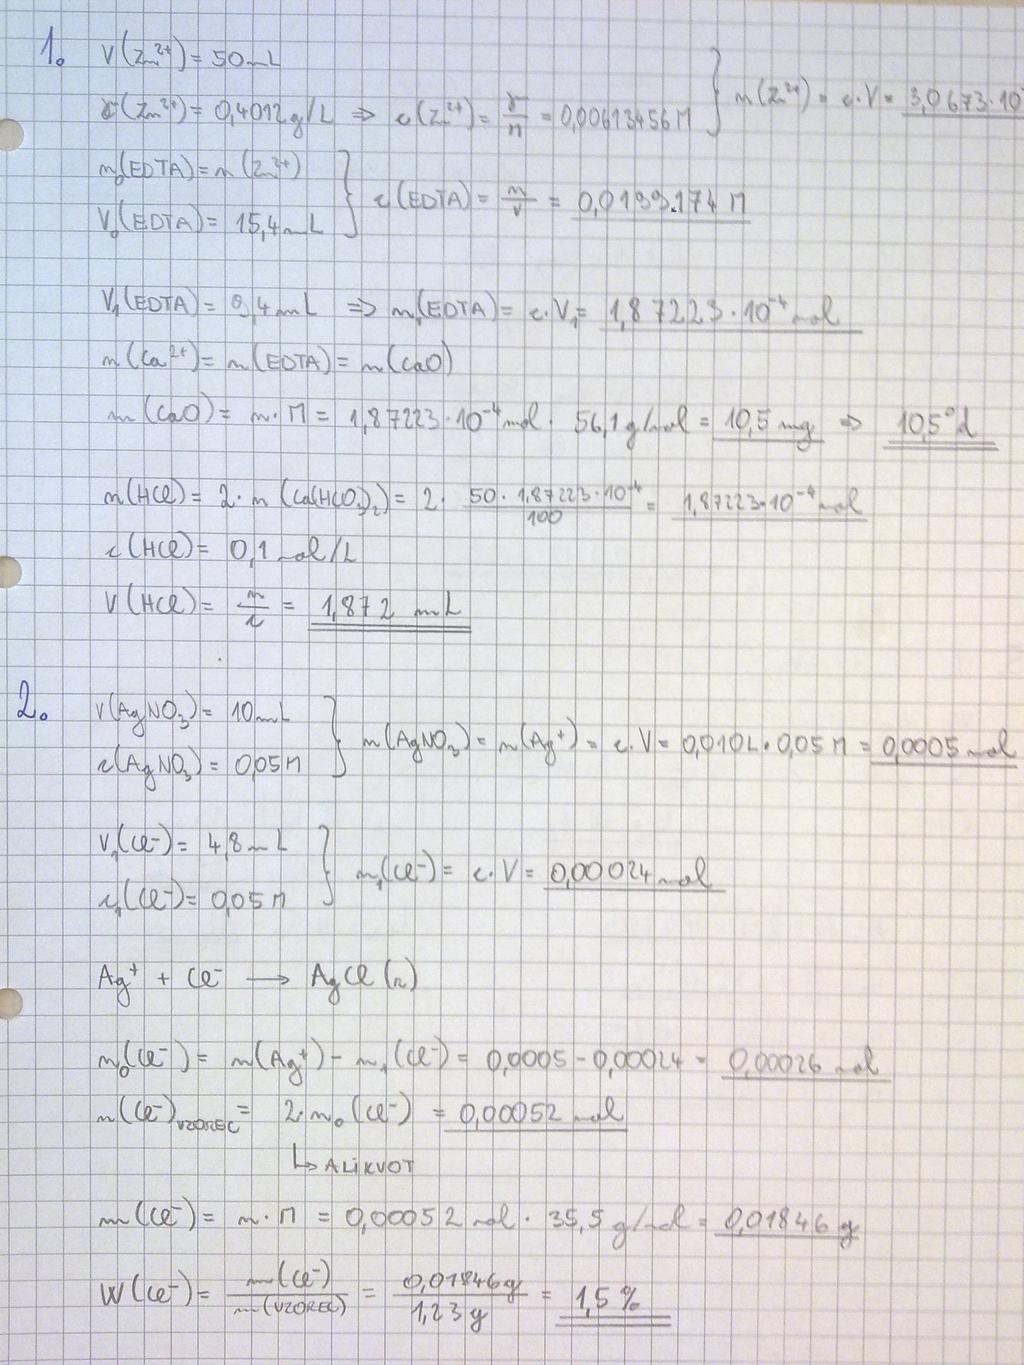 1. V(Zn²⁺) = 50 mL
γ(Zn²⁺) = 0,4012 g/L ⇒ c(Zn²⁺) = γ/M = 0,00613456 M } n(Zn²⁺) = c·V = 3,0673·10
n₀(EDTA) = n(Zn²⁺)
V₀(EDTA) = 15,4 mL } c(EDTA) = n/V = 0,0199174 M
V₁(EDTA) = 9,4 mL ⇒ n₁(EDTA) = c·V₁ = 1,87223·10⁻⁴ mol
n(Ca²⁺) = n(EDTA) = n(CaO)
m(CaO) = n·M = 1,87223·10⁻⁴ mol · 56,1 g/mol = 10,5 mg ⇒ 10,5°d
n(HCl) = 2·n(Ca(HCO₃)₂) = 2 · 50 · 1,87223·10⁻⁴/100 = 1,87223·10⁻⁴ mol
c(HCl) = 0,1 mol/L
V(HCl) = n/c = 1,872 mL
2. V(AgNO₃) = 10 mL
c(AgNO₃) = 0,05 M } n(AgNO₃) = n(Ag⁺) = c·V = 0,010 L · 0,05 M = 0,0005 mol
V₁(Cl⁻) = 4,8 mL
c₁(Cl⁻) = 0,05 M } n₁(Cl⁻) = c·V = 0,00024 mol
Ag⁺ + Cl⁻ → AgCl(s)
n₀(Cl⁻) = n(Ag⁺) - n₁(Cl⁻) = 0,0005 - 0,00024 = 0,00026 mol
n(Cl⁻)VZOREC = 2·n₀(Cl⁻) = 0,00052 mol
↳ ALIKVOT
m(Cl⁻) = n·M = 0,00052 mol · 35,5 g/mol = 0,01846 g
W(Cl⁻) = m(Cl⁻)/m(VZOREC) = 0,01846 g/1,23 g = 1,5 %